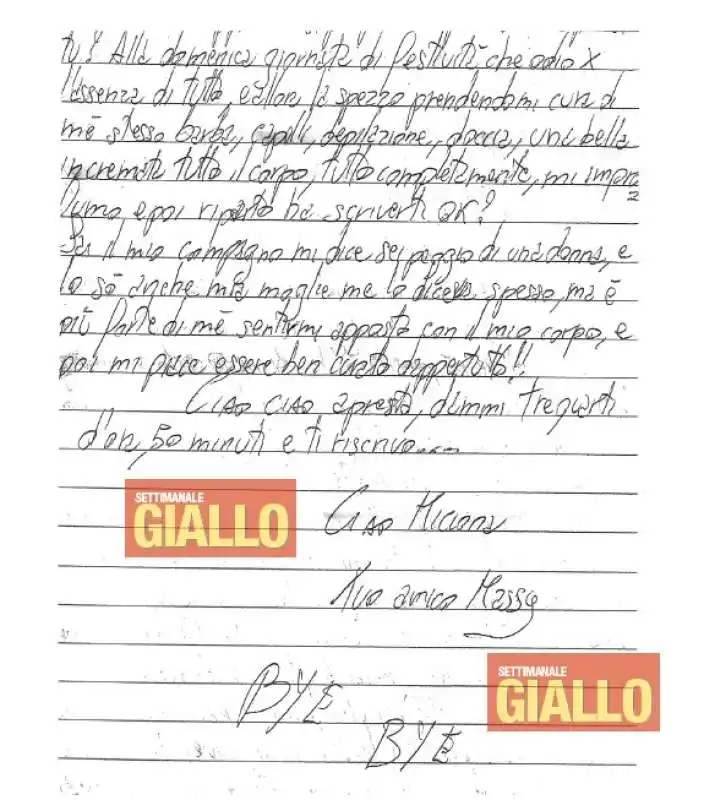 tu? Alla domenica giornata di festività che odio x
l'assenza di tutto, e allora la spezzo prendendomi cura di
mè stesso barba, capelli, depilazione, doccia, una bella
incremata tutto il corpo, tutto completamente, mi impro
fumo e poi riparto ha scriverti OK?
il mio compagno mi dice sei peggio di una donna, e
lo sò anche mia moglie me lo diceva spesso, ma è
più forte di mè sentirmi apposto con il mio corpo, e
poi mi piace essere ben curato dappertutto!!
CIAO CIAO apresto, dammi trequarti
d'ora, 50 minuti e ti riscrivo....
SETTIMANALE
GIALLO
Ciao Miciona
Tuo amico Massy
SETTIMANALE
GIALLO
BYE
BYE